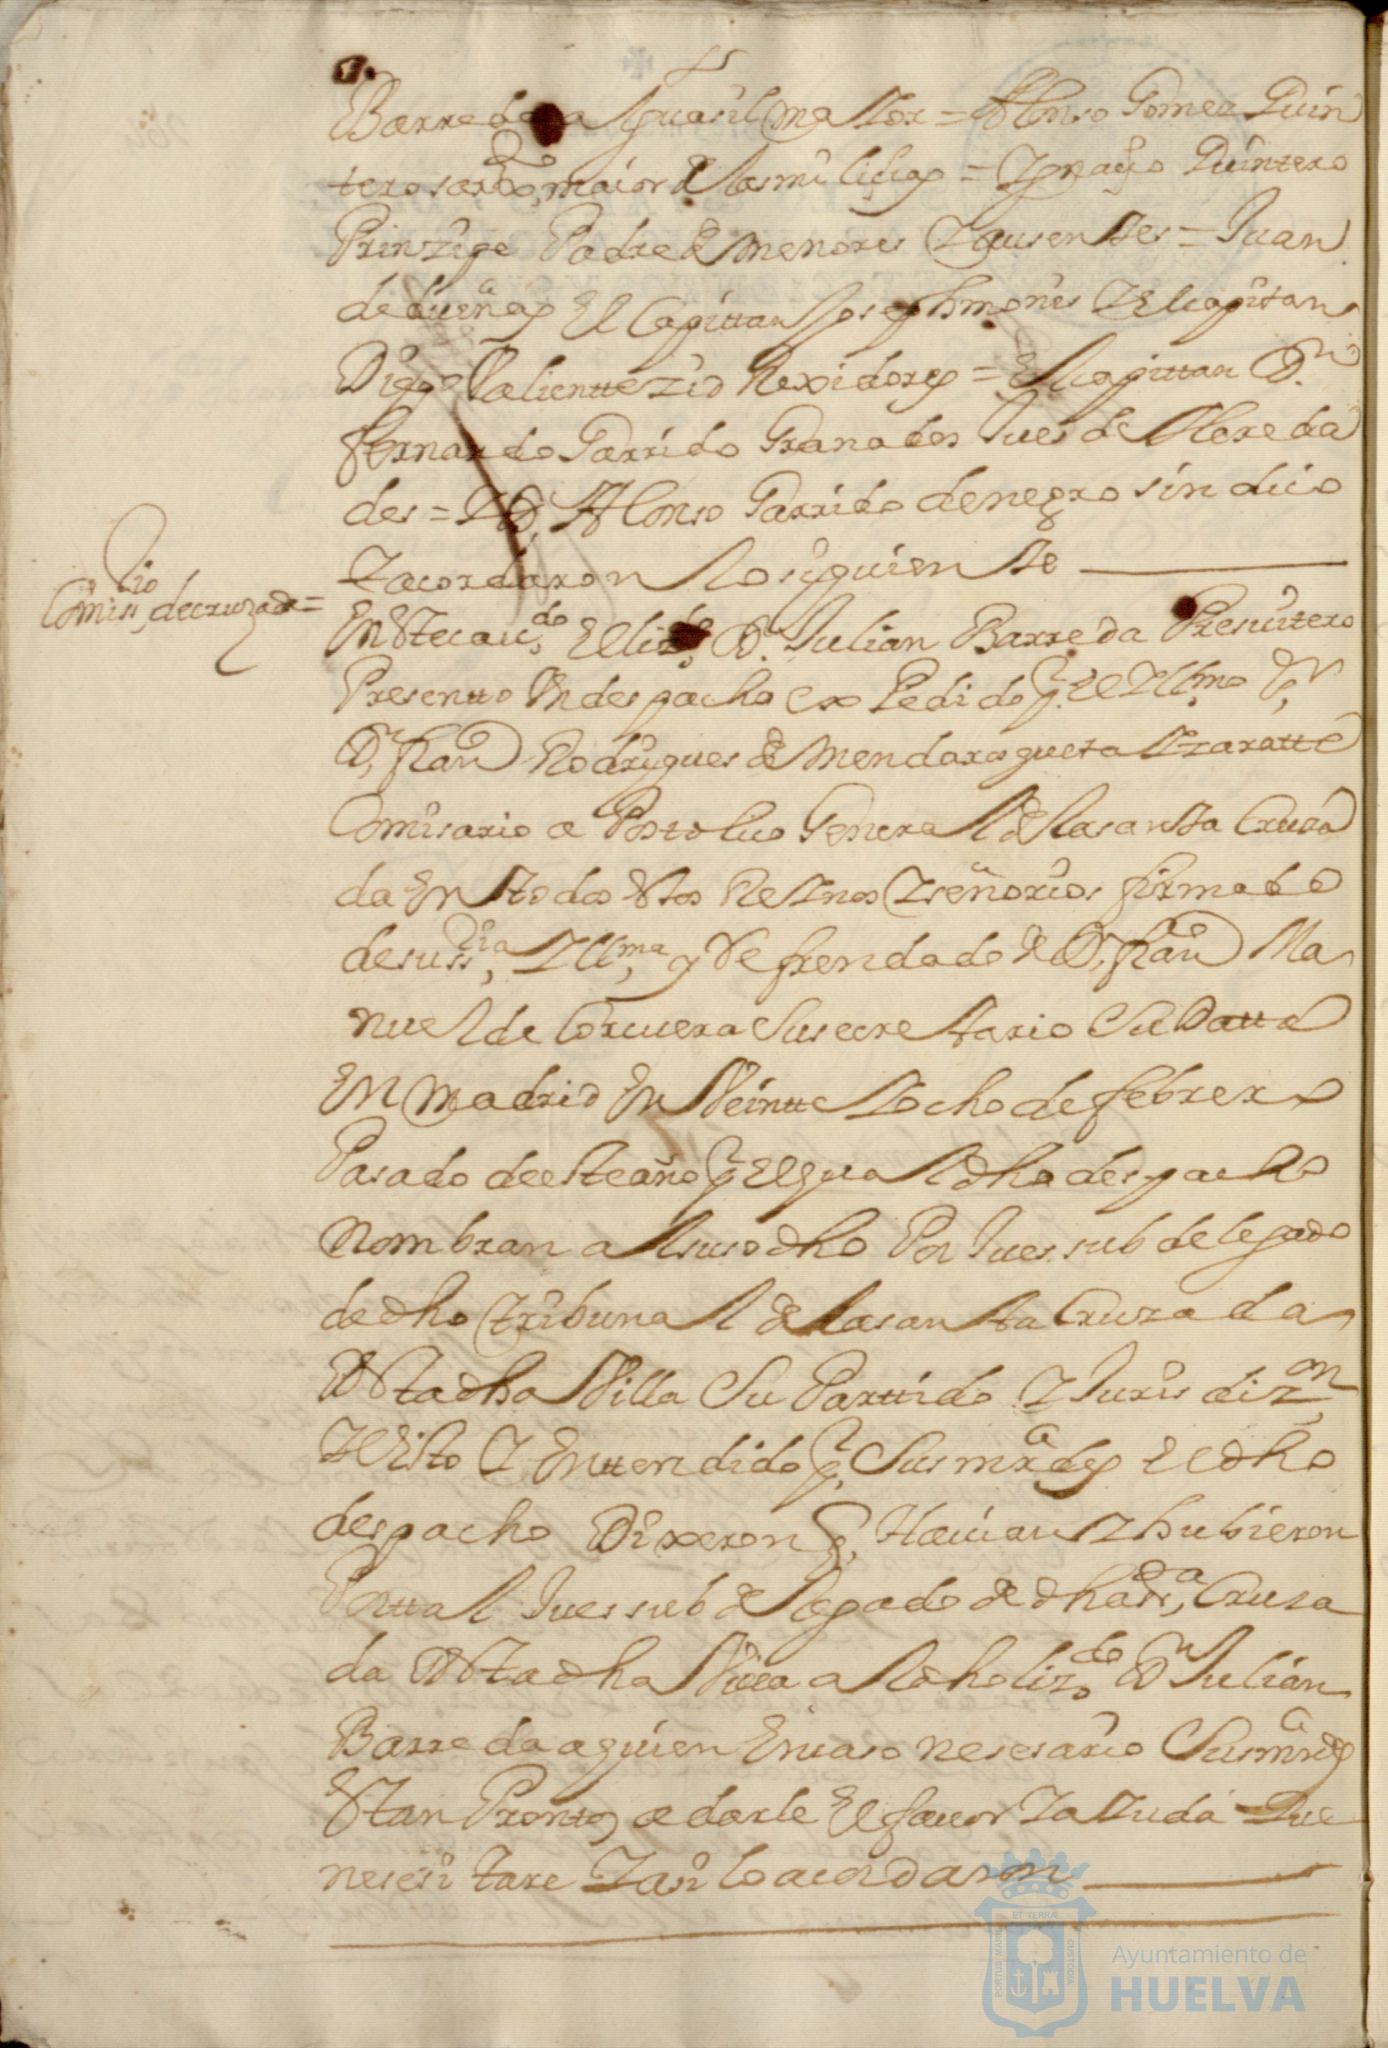 Barreda Alguasil maior = Alonso Gomez Quin
tero sarxto maior de las miliçias = Ygnaçio Quintero
Prinzipe Padre de menores Y ausenttes = Juan
de dueñas El Capittan Joseph mones Y El capitan
Diego Valientte zid Rexidores = El capittan Dn.
fernando Garrido Granados Jues de Hereda
des = Y D. Alonso Garrido de negro sindico
Y acordaron lo siguientte
Comissrio, de cruzada =
En este cavdo, El lizdo, Dn. Julian Barreda Presvitero
Presentto Un despacho expedido p. El Yllmo. Sr.
Dn. franco Rodrigues de Mendarosqueta Y zaratte
Comisario apostolico General de la santa Cruza
da En todos Estos Reynos Y señorios firmado
de su ssria, Yllma, y Refrendado de D. franco Ma
nuel de Corcuera Su secrettario Su Datta
En Madrid En Veintte Y ocho de febrero
Pasado de este año p. El qual dho despacho
Nombran al suso dho Por Jues subdelegado
de dho tribunal de la santa Cruzada
Esta dha Villa Su Parttido Y Jurisdizon
Y Visto Y Enttendido p. Sus mrdes El dho
despacho Dixeron q. Havian Y hubieron
Por ttal Jues subdelegado de dha sta, Cruza
da Esta dha Villa al dho lizdo. Dn Julian
Barreda a quien En caso nesesario Sus mrds
Estan Promtos a darle El favor Y aYuda Que
nesesitare Y asi lo acordaron
PORTUS MARIS ET TERRÆ CUSTODIA
Ayuntamiento de
HUELVA